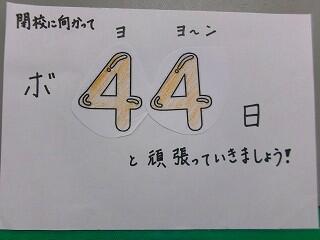 閉校に向かって
ヨ ヨ～ン
ボ 44 日
と頑張っていきましょう!